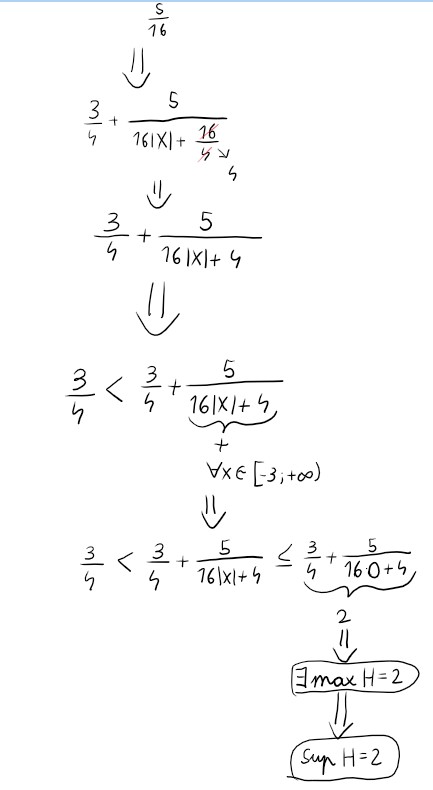 5/16
⇓
3/4 + 5/(16|x| + 16/4 ↘ 4)
⇓
3/4 + 5/(16|x| + 4)
⇓
3/4 < 3/4 + 5/(16|x| + 4)
+
∀x∈[-3;+∞)
⇓
3/4 < 3/4 + 5/(16|x|+4) ≤ 3/4 + 5/(16·0+4)
2
⇓
∃ max H=2
⇓
Sup H=2